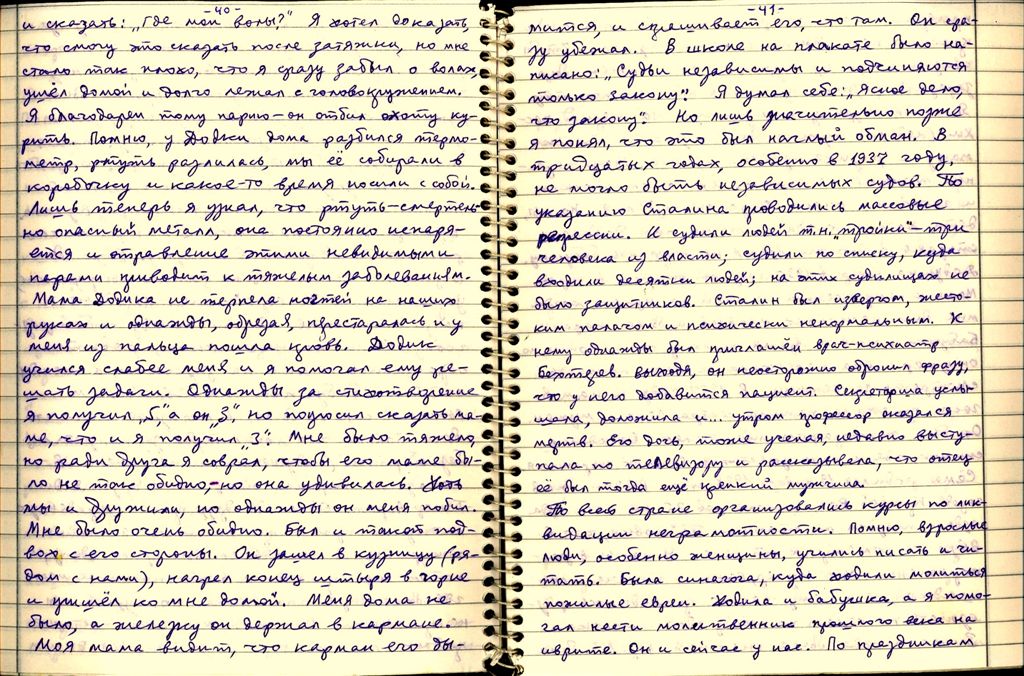 -40-
и сказать: „Где мои волы?" Я хотел доказать,
что смогу это сказать после затяжки, но мне
стало так плохо, что я сразу забыл о волах,
ушёл домой и долго лежал с головокружением.
Я благодарен тому парню – он отбил охоту ку-
рить. Помню, у Додки дома разбился термо-
метр, ртуть разлилась, мы её собирали в
коробочку и какое-то время носили с собой.
Лишь теперь я узнал, что ртуть – смертель-
но опасный металл, она постоянно испаря-
ется и отравление этими невидимыми
парами приводит к тяжелым заболеваниям.
Мама Додика не терпела ногтей на наших
руках и однажды, обрезая, перестаралась и у
меня из пальца пошла кровь. Додик
учился слабее меня и я помогал ему ре-
шать задачи. Однажды за стихотворение
я получил „5", а он „3", но попросил сказать ма-
ме, что и я получил „3". Мне было тяжело,
но ради друга я соврал, чтобы его маме бы-
ло не так обидно, – но она удивилась. Хоть
мы и дружили, но однажды он меня побил.
Мне было очень обидно. Был и такой под-
вох с его стороны. Он зашел в кузницу (ря-
дом с нами), нагрел конец штыря в горне
и пришёл ко мне домой. Меня дома не
было, а железку он держал в кармане.
Моя мама видит, что карман его ды-
-41-
мится, и спрашивает его, что там. Он сра-
зу убежал. В школе на плакате было на-
писано: „Судьи независимы и подчиняются
только закону". Я думал себе: „Ясное дело,
что закону". Но лишь значительно позже
я понял, что это был наглый обман. В
тридцатых годах, особенно в 1937 году,
не могло быть независимых судов. По
указанию Сталина проводились массовые
репрессии. И судили людей т.н. „тройки" – три
человека из власти; судили по списку, куда
входили десятки людей; на этих судилищах не
было защитников. Сталин был извергом, жесто-
ким палачом и психически ненормальным. К
нему однажды был приглашён врач-психиатр
Бехтерев. Выходя, он неосторожно обронил фразу,
что у него добавится пациент. Секретарша услы-
шала, доложила и... утром профессор оказался
мертв. Его дочь, тоже ученая, недавно высту-
пала по телевизору и рассказывала, что отец
её был тогда ещё крепкий мужчина.
По всей стране организовались курсы по лик-
видации неграмотности. Помню, взрослые
люди, особенно женщины, учились писать и чи-
тать. Была синагога, куда ходили молиться
пожилые евреи. Ходила и бабушка, а я помо-
гал нести молитвенник прошлого века на
иврите. Он и сейчас у нас. По праздникам